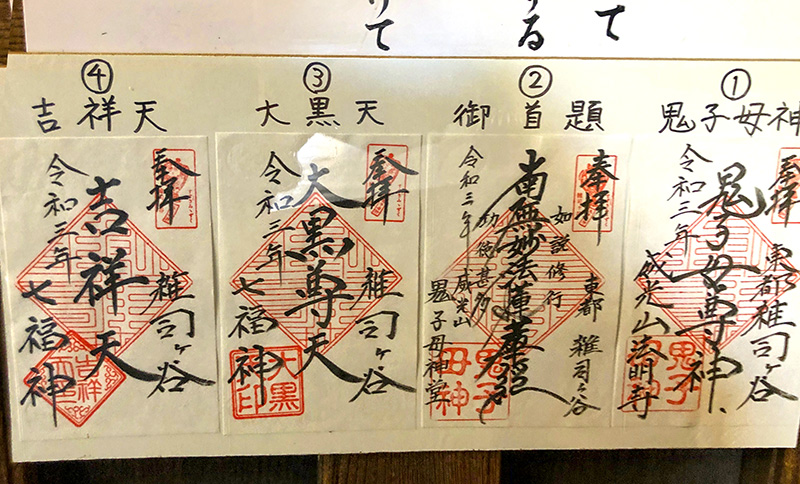 けて
する
て
①
鬼子母神
奉拝
東都雑司ヶ谷
鬼子母尊神
令和三年
威光山法明寺
鬼子母神
②
御首題
奉拝
東都 雑司ヶ谷
如説修行
南無妙法蓮華経
功徳甚多
令和三年 威光山
鬼子母神堂
鬼子母神
③
大黒天
奉拝
雑司ヶ谷
大黒尊天
令和三年
七福神
大黒印
④
吉祥天
奉拝
雑司ヶ谷
吉祥天
令和三年
七福神
吉祥